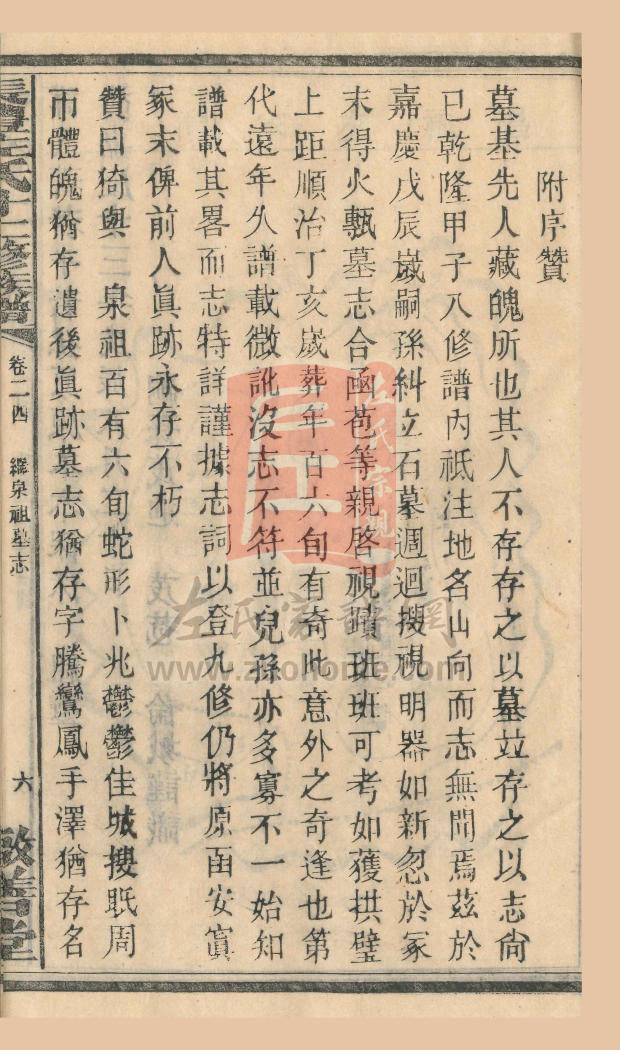 附序贊
墓基先人藏魄所也其人不存存之以墓竝存之以志尙
已乾隆甲子八修譜內祇注地名山向而志無聞焉茲於
嘉慶戊辰歲嗣孫糾立石墓週迴搜視明器如新忽於冢
末得火甎墓志合凾苞等親啓視蹟班班可考如獲拱璧
上距順治丁亥歲葬年百六旬有奇此意外之奇逢也第
代遠年久譜載微訛沒志不符並兒孫亦多寡不一始知
譜載其畧而志特詳謹據志詞以登九修仍將原函安窴
冢末俾前人眞跡永存不朽
贊曰猗與三泉祖百有六旬蛇形卜兆鬱鬱佳城搜眂周
帀體魄猶存遺後眞跡墓志猶存字騰鸞鳳手澤猶存名
左氏十二修族譜
卷二四
繹泉祖墓志
六
敬善堂
左氏宗親
左氏家譜網
www.zuohome.com